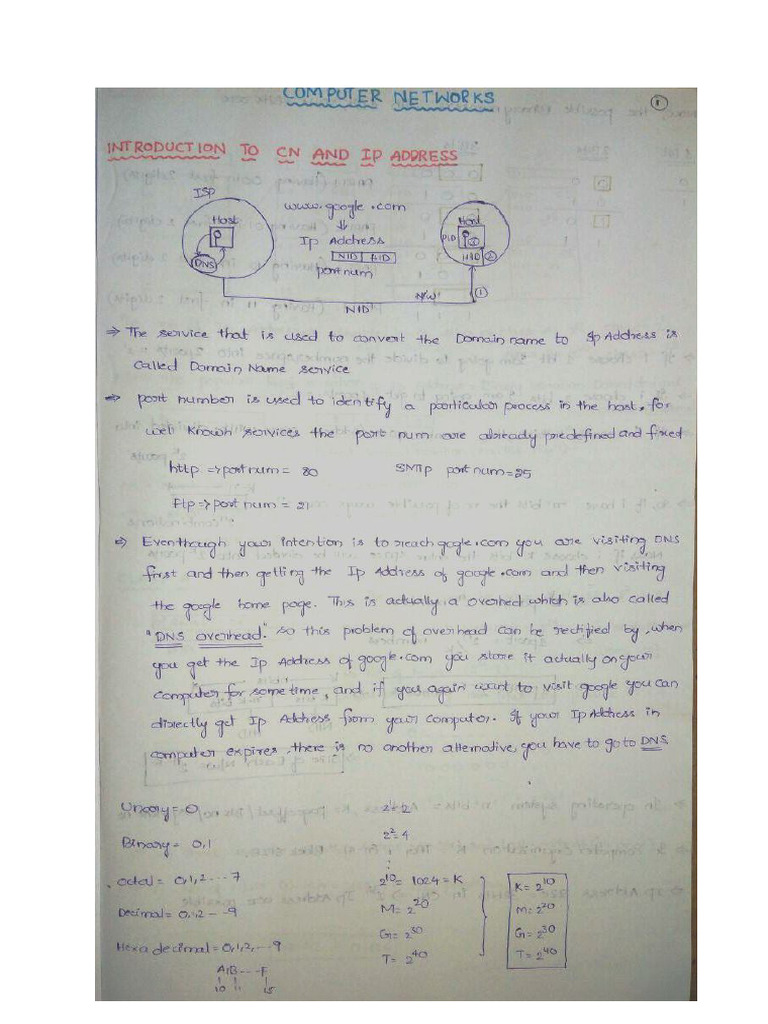 COMPUTER NETWORKS
1
INTRODUCTION TO CN AND IP ADDRESS
ISP
www.google.com
Host
Host
P
DNS
⇓
Ip Address
NID HID
port num
PID
P
③
HID ②
N/W
①
NID
⇒ The service that is used to convert the Domain name to Ip Address is
called Domain Name service
⇒ port number is used to identify a particular process in the host, for
well known services the port num are already predefined and fixed
http ⇒ port num = 80 SMTP port num = 25
Ftp ⇒ port num = 21
⇒ Eventhough your intention is to reach gogle.com you are visiting DNS
first and then getting the Ip Address of google.com and then visiting
the google home page. This is actually a overhed which is also called
"DNS overhead." so this problem of overhead can be rectified by, when
you get the Ip Address of google.com you store it actually on your
computer for some time, and if you again want to visit google you can
directly get Ip Address from your computer. If your Ip Address in
computer expires, there is no another alternative, you have to go to DNS.
Unary = 0,
Binary = 0,1
octal = 0,1,2 --- 7
Decimal = 0,1,2 -- -9
Hexa decimal = 0,1,2, ---9
A,B - - - F
10 11 15
2¹=2
2² = 4
⋮
2¹⁰ = 1024 = K
M = 2²⁰
G = 2³⁰
T = 2⁴⁰
K = 2¹⁰
M = 2²⁰
G = 2³⁰
T = 2⁴⁰